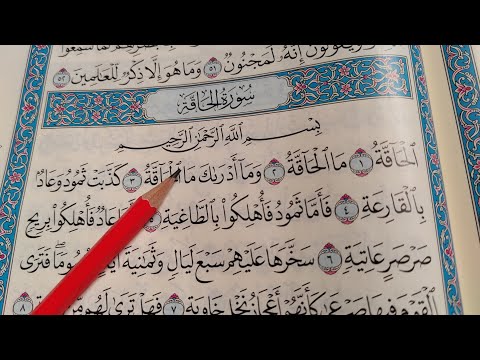 وَيَقُولُونَ إِنَّهُۥ لَمَجۡنُونٞ ٥١ وَمَا هُوَ إِلَّا ذِكۡرٞ لِّلۡعَٰلَمِينَ ٥٢
سُورَةُ الحَاقَّةِ
بِسۡمِ ٱللَّهِ ٱلرَّحۡمَٰنِ ٱلرَّحِيمِ
ٱلۡحَآقَّةُ ١ مَا ٱلۡحَآقَّةُ ٢ وَمَآ أَدۡرَىٰكَ مَا ٣ كَذَّبَتۡ ثَمُودُ وَعَادُۢ
بِٱلۡقَارِعَةِ ٤ فَأَمَّا ثَمُودُ فَأُهۡلِكُواْ بِٱلطَّاغِيَةِ ٥ عَادٞ فَأُهۡلِكُواْ بِرِيحٖ
صَرۡصَرٍ عَاتِيَةٖ ٦ سَخَّرَهَا عَلَيۡهِمۡ سَبۡعَ لَيَالٖ وَثَمَٰنِيَةَ فَتَرَى
ٱلۡقَوۡمَ فِيهَا صَرۡعَىٰ كَأَنَّهُمۡ أَعۡجَازُ نَخۡلٍ خَاوِيَةٖ ٧ فَهَلۡ تَرَىٰ لَهُم ٨